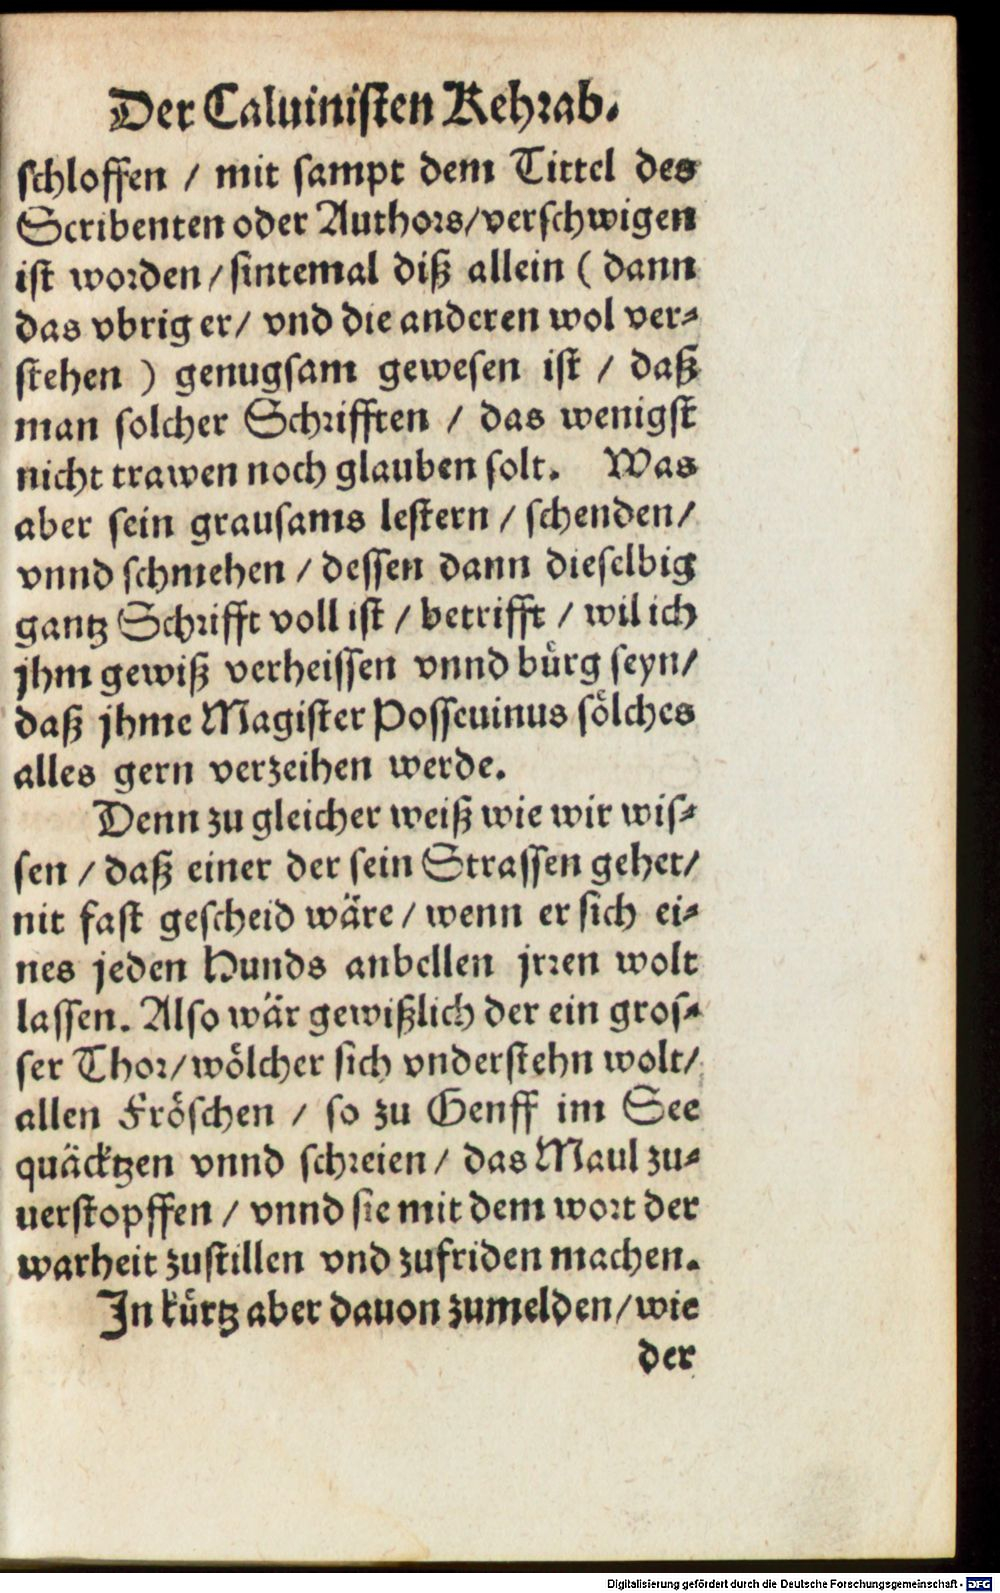 Der Caluinisten Kehrab.
schloffen / mit sampt dem Tittel des
Scribenten oder Authors/verschwigen
ist worden / sintemal diß allein ( dann
das vbrig er/ vnd die anderen wol ver-
stehen ) genugsam gewesen ist / daß
man solcher Schrifften / das wenigst
nicht trawen noch glauben solt. Was
aber sein grausams lestern / schenden/
vnnd schmehen / dessen dann dieselbig
gantz Schrifft voll ist / betrifft / wil ich
jhm gewiß verheissen vnnd bürg seyn/
daß jhme Magister Posseuinus sölches
alles gern verzeihen werde.
Denn zu gleicher weiß wie wir wis-
sen / daß einer der sein Strassen gehet/
nit fast gescheid wäre / wenn er sich ei-
nes jeden Hunds anbellen jrren wolt
lassen. Also wär gewißlich der ein gros-
ser Thor/wölcher sich vnderstehn wolt/
allen Fröschen / so zu Genff im See
quäcktzen vnnd schreien / das Maul zu-
uerstopffen / vnnd sie mit dem wort der
warheit zustillen vnd zufriden machen.
In kürtz aber dauon zumelden/wie
der
Digitalisierung gefördert durch die Deutsche Forschungsgemeinschaft - DFG